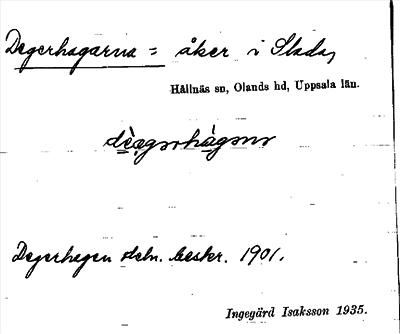 Degerhagarna = åker i Slada,
Hållnäs sn, Olands hd, Uppsala län.
Degerhagen stebr. beskr. 1901.
Ingegärd Isaksson 1935.